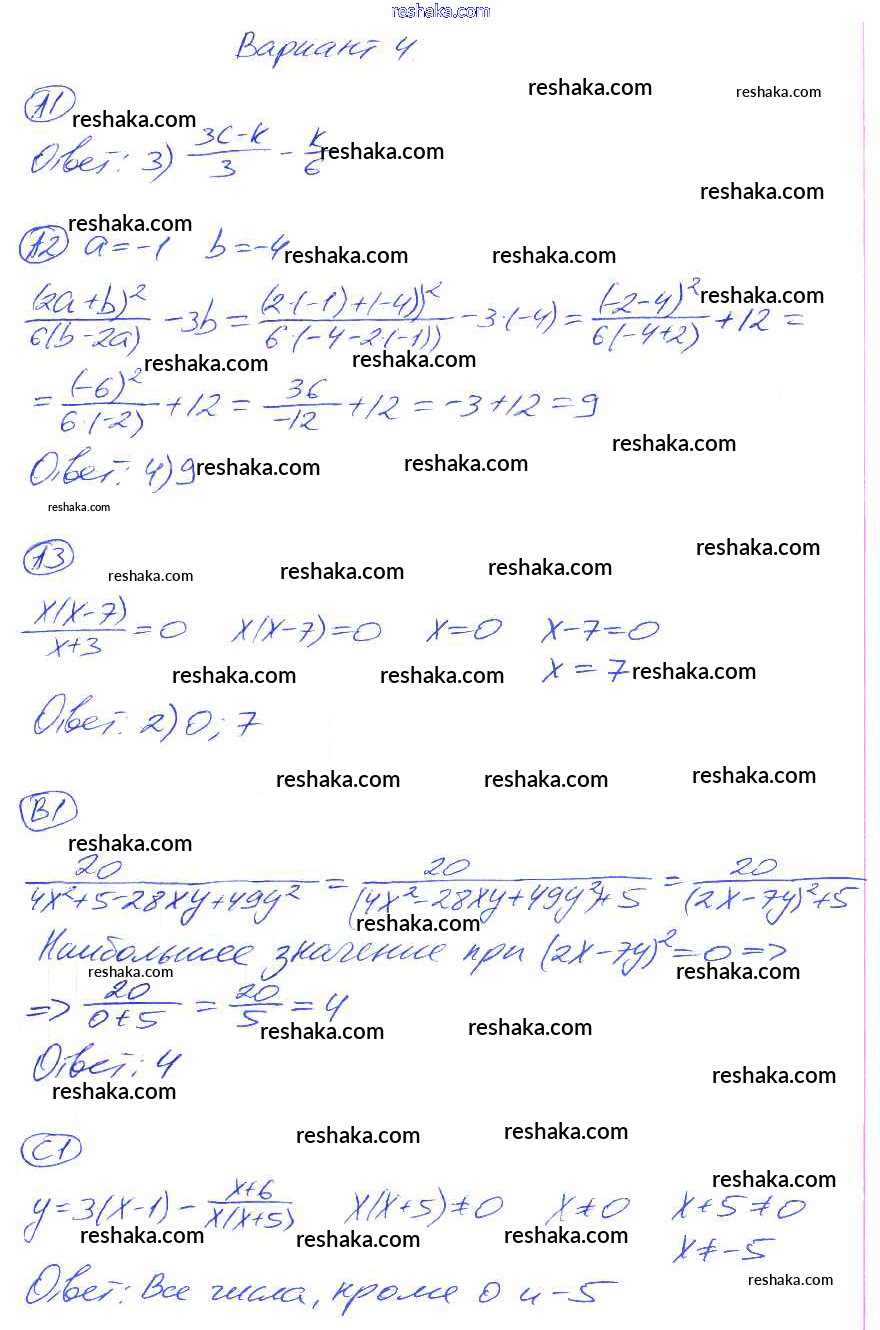 reshaka.com
Вариант 4
reshaka.com reshaka.com
А1
reshaka.com
Ответ: 3) (3c-k)/3 - k/6 reshaka.com
reshaka.com
reshaka.com
А2 a=-1 b=-4 reshaka.com reshaka.com
(2a+b)²/6(b-2a) -3b = (2·(-1)+(-4))²/6·(-4-2·(-1)) -3·(-4) = (-2-4)²/6(-4+2) +12 = reshaka.com
reshaka.com reshaka.com
= (-6)²/6·(-2) +12 = 36/-12 +12 = -3+12 = 9
reshaka.com
Ответ: 4) 9 reshaka.com reshaka.com
reshaka.com
А3 reshaka.com
reshaka.com reshaka.com reshaka.com
x(x-7)/x+3 = 0 x(x-7)=0 x=0 x-7=0
reshaka.com reshaka.com x = 7 reshaka.com
Ответ: 2) 0; 7
reshaka.com reshaka.com reshaka.com
В1
reshaka.com
20/4x²+5-28xy+49y² = 20/(4x²-28xy+49y²)+5 = 20/(2x-7y)²+5
reshaka.com
Наибольшее значение при (2x-7y)²=0 =>
reshaka.com reshaka.com
=> 20/0+5 = 20/5 = 4
reshaka.com reshaka.com
Ответ: 4
reshaka.com reshaka.com
reshaka.com reshaka.com
С1
reshaka.com
y=3(x-1) - x+6/x(x+5) x(x+5)≠0 x≠0 x+5≠0
reshaka.com reshaka.com reshaka.com x≠-5
reshaka.com
Ответ: Все числа, кроме 0 и -5